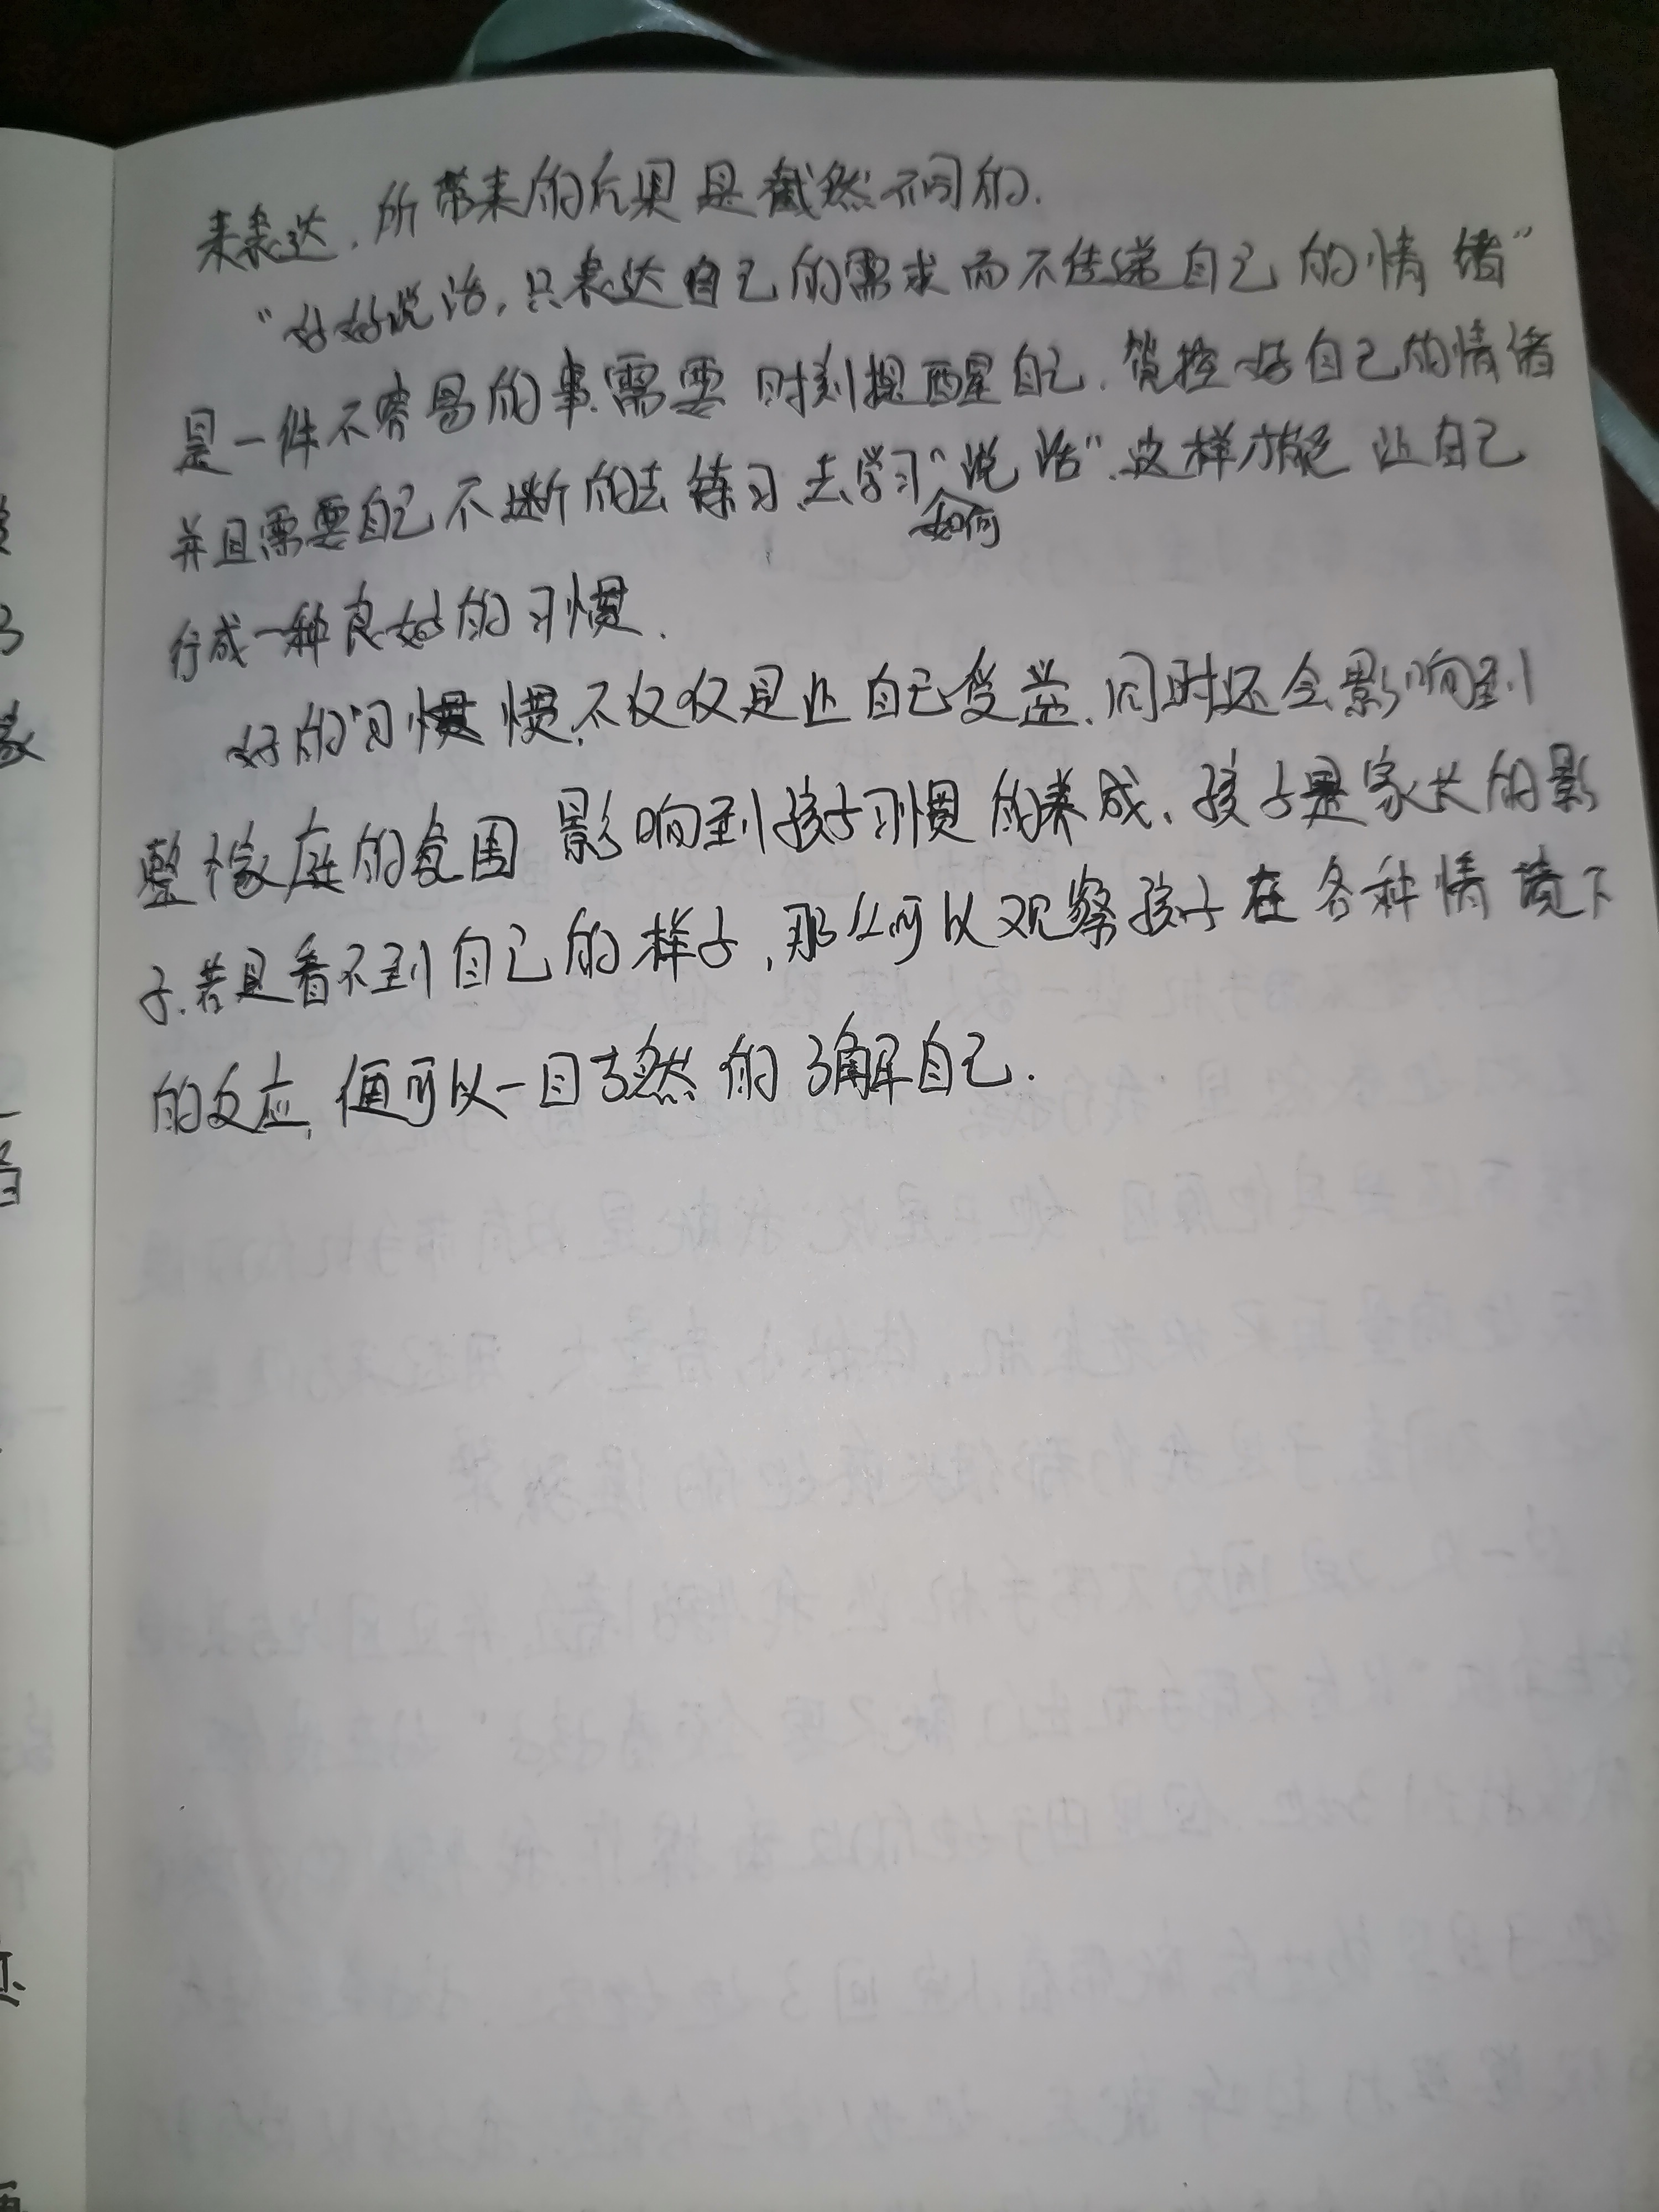 来表达，所带来的后果是截然不同的.
“好好说话，只表达自己的需求而不传递自己的情绪”
是一件不容易的事.需要时刻提醒自己.管控好自己的情绪
并且需要自己不断的去练习.去学习如何“说话”.这样才能让自己
行成一种良好的习惯.
好的习惯惯.不仅仅是让自己受益.同时还会影响到
整个家庭的氛围 影响到孩子习惯的养成、孩子是家长的影
子.若是看不到自己的样子,那么可以观察孩子在各种情境下
的反应,便可以一目了然的了解自己.